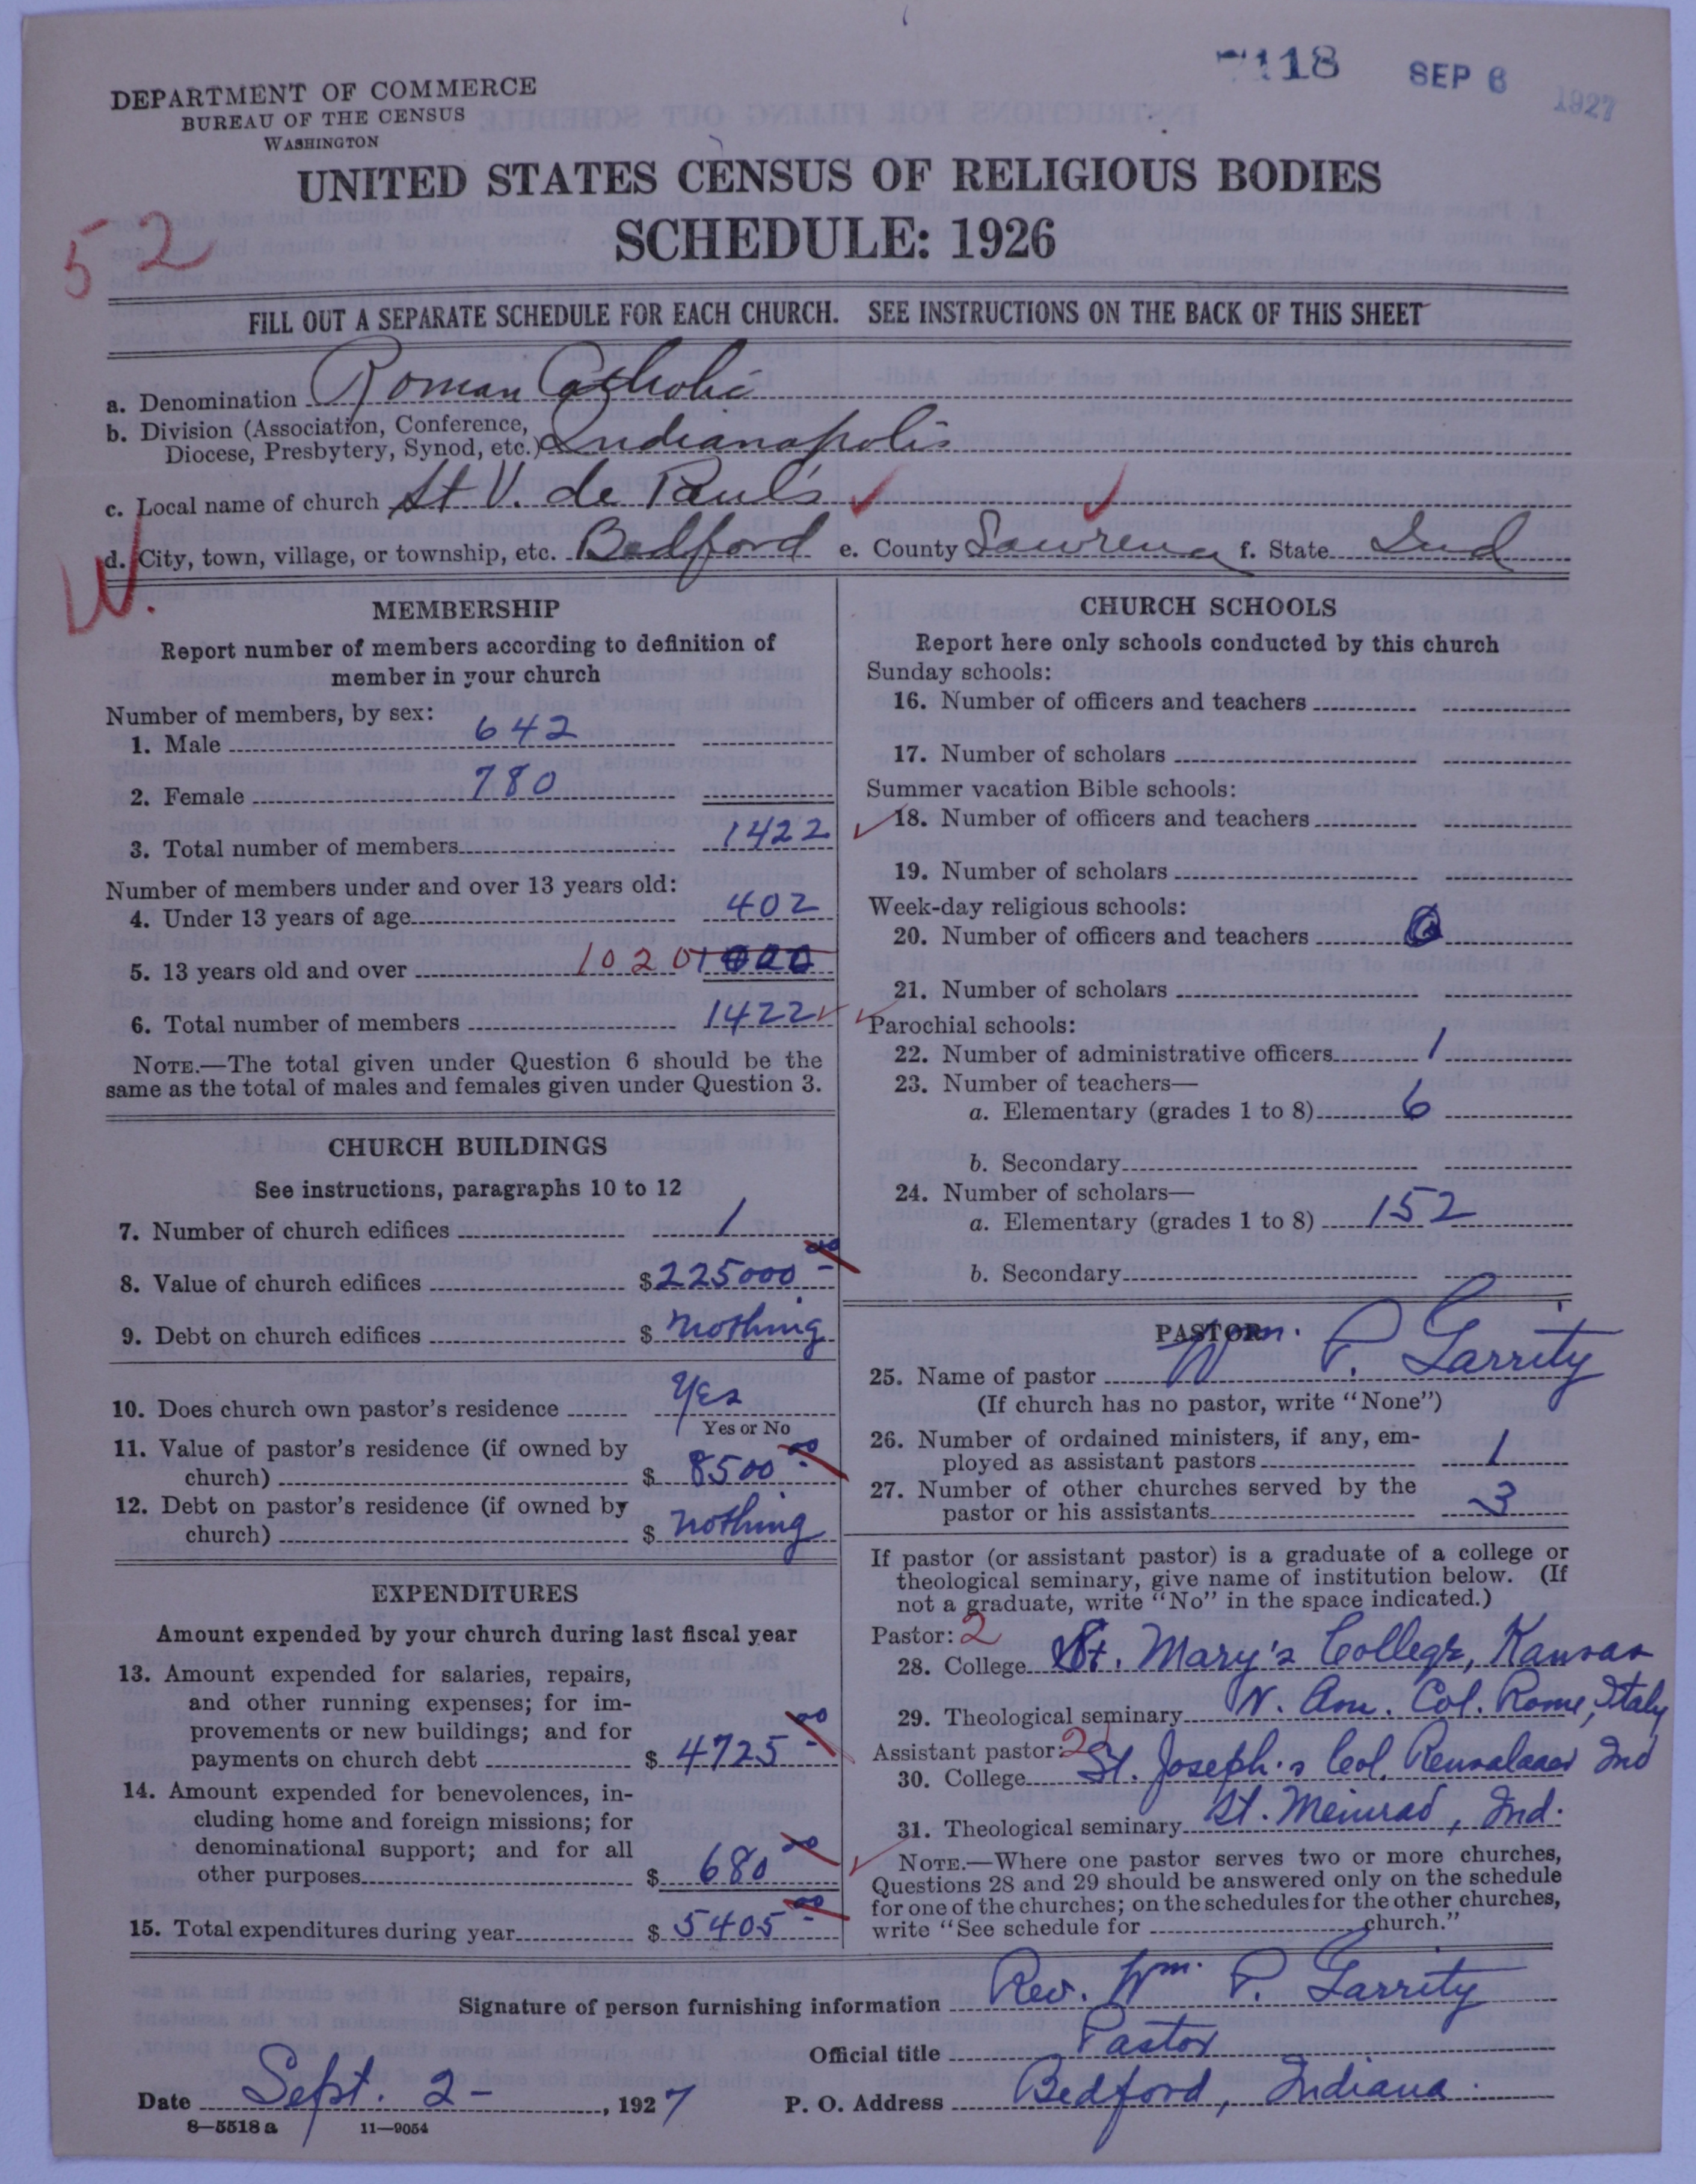 7118 SEP 6 1927
DEPARTMENT OF COMMERCE
BUREAU OF THE CENSUS
WASHINGTON
UNITED STATES CENSUS OF RELIGIOUS BODIES
SCHEDULE: 1926
52
FILL OUT A SEPARATE SCHEDULE FOR EACH CHURCH. SEE INSTRUCTIONS ON THE BACK OF THIS SHEET
a. Denomination Roman Catholic
b. Division (Association, Conference,
Diocese, Presbytery, Synod, etc.) Indianapolis
c. Local name of church St V. de Paul's
d. City, town, village, or township, etc. Bedford e. County Lawrence f. State Ind
W.
MEMBERSHIP
Report number of members according to definition of
member in your church
Number of members, by sex:
1. Male 642
2. Female 780
3. Total number of members 1422
Number of members under and over 13 years old:
4. Under 13 years of age 402
5. 13 years old and over 1020
6. Total number of members 1422
NOTE.—The total given under Question 6 should be the
same as the total of males and females given under Question 3.
CHURCH BUILDINGS
See instructions, paragraphs 10 to 12
7. Number of church edifices 1
8. Value of church edifices $225000 00
9. Debt on church edifices $ nothing
10. Does church own pastor's residence Yes
Yes or No
11. Value of pastor's residence (if owned by
church) $ 8500 00
12. Debt on pastor's residence (if owned by
church) $ nothing
EXPENDITURES
Amount expended by your church during last fiscal year
13. Amount expended for salaries, repairs,
and other running expenses; for im-
provements or new buildings; and for
payments on church debt $ 4725 00
14. Amount expended for benevolences, in-
cluding home and foreign missions; for
denominational support; and for all
other purposes $ 680 00
15. Total expenditures during year $ 5405 00
CHURCH SCHOOLS
Report here only schools conducted by this church
Sunday schools:
16. Number of officers and teachers
17. Number of scholars
Summer vacation Bible schools:
18. Number of officers and teachers
19. Number of scholars
Week-day religious schools:
20. Number of officers and teachers
21. Number of scholars
Parochial schools:
22. Number of administrative officers 1
23. Number of teachers—
a. Elementary (grades 1 to 8) 6
b. Secondary
24. Number of scholars—
a. Elementary (grades 1 to 8) 152
b. Secondary
PASTOR
25. Name of pastor Wm. P. Garrity
(If church has no pastor, write "None")
26. Number of ordained ministers, if any, em-
ployed as assistant pastors 1
27. Number of other churches served by the
pastor or his assistants 3
If pastor (or assistant pastor) is a graduate of a college or
theological seminary, give name of institution below. (If
not a graduate, write "No" in the space indicated.)
Pastor: 2
28. College St. Mary's College, Kansas
29. Theological seminary N. Am. Col. Rome, Italy
Assistant pastor: 2
30. College St. Joseph's Col. Rensalaaer Ind
31. Theological seminary St. Meinrad, Ind.
NOTE.—Where one pastor serves two or more churches,
Questions 28 and 29 should be answered only on the schedule
for one of the churches; on the schedules for the other churches,
write "See schedule for church."
Signature of person furnishing information Rev. Wm. P. Garrity
Official title Pastor
Date Sept. 2 -, 1927 P. O. Address Bedford, Indiana.
8—5518 a 11—9054